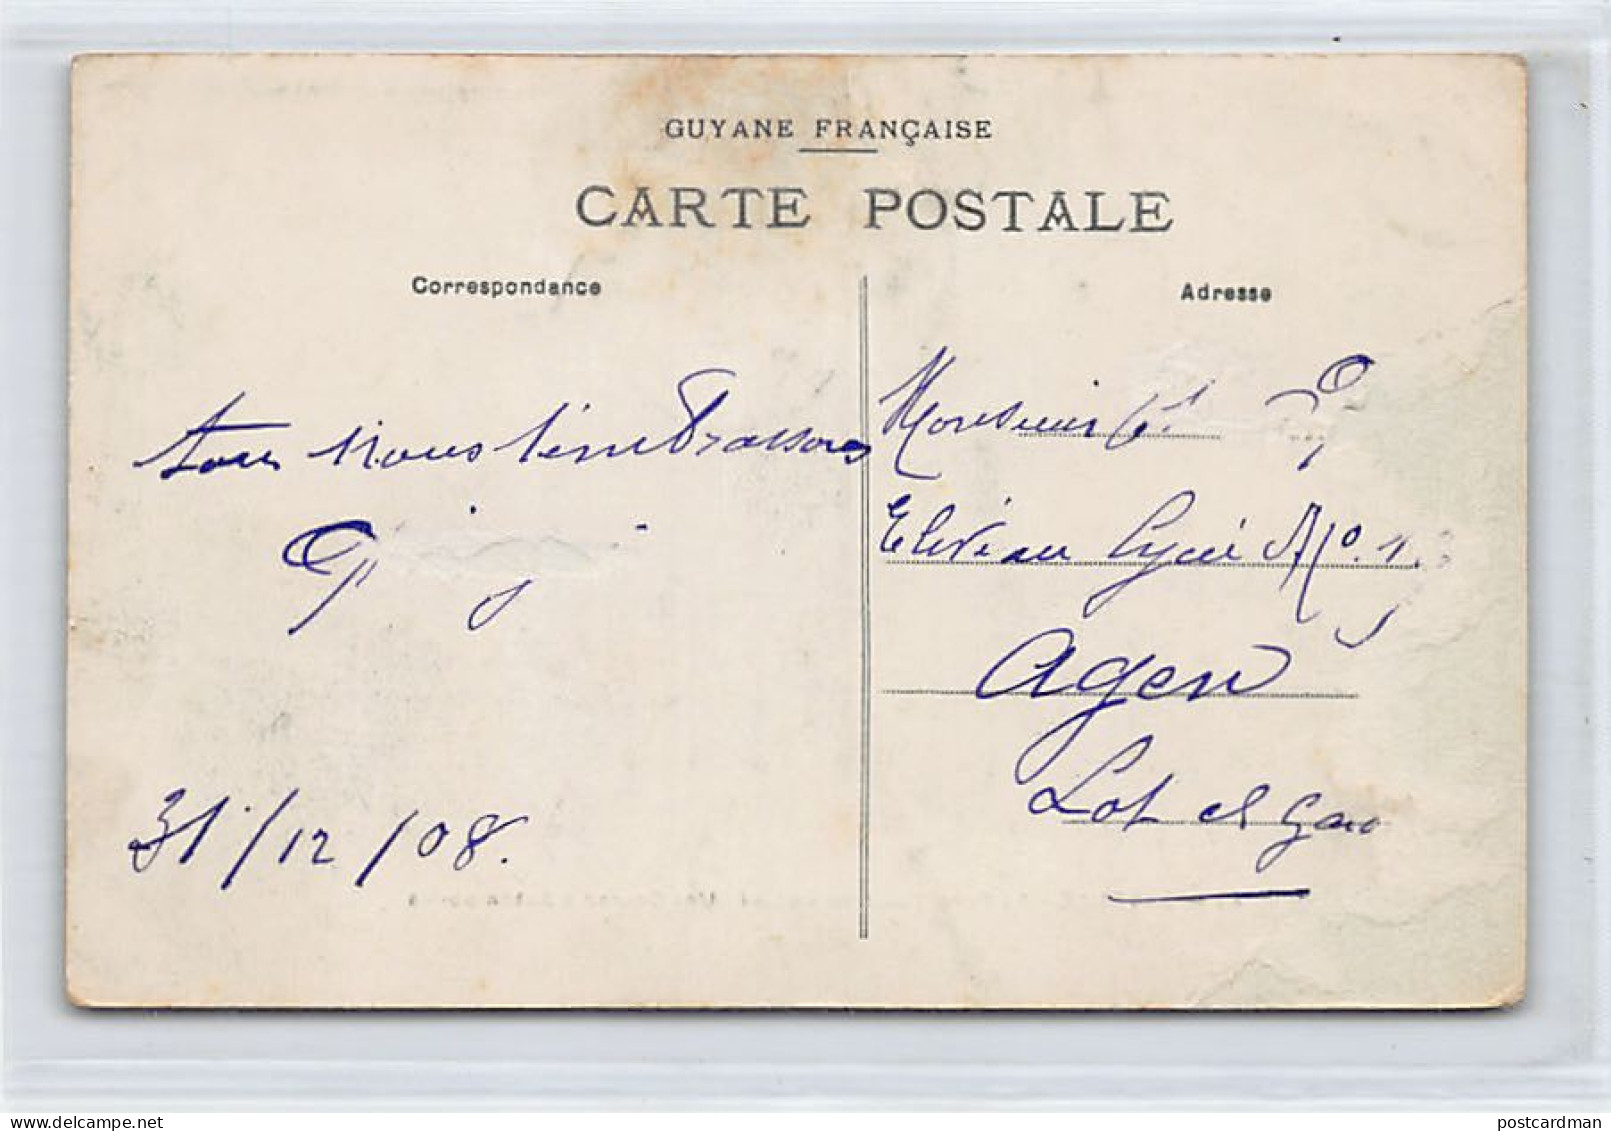 GUYANE FRANÇAISE
CARTE POSTALE
Correspondance
Adresse
tous nous t'embrassons
31/12/08.
Monsieur
Elève au Lycée
Agen
Lot et Garo
postcardman